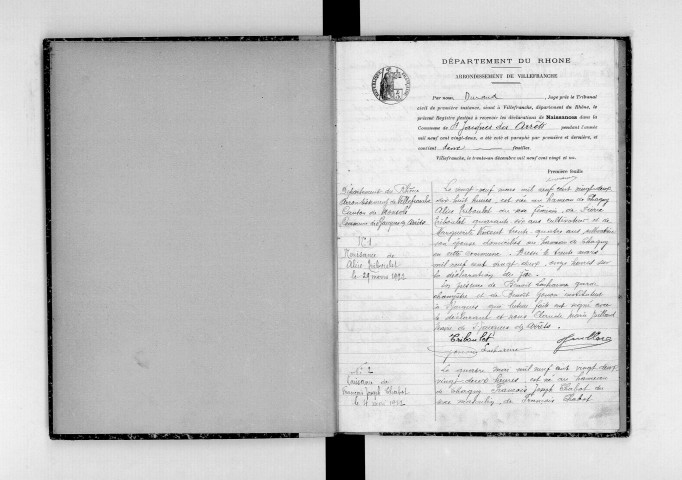 DÉPARTEMENT DU RHONE
ARRONDISSEMENT DE VILLEFRANCHE
Par nous, Durand, Juge près le Tribunal
civil de première instance, séant à Villefranche, département du Rhône, le
présent Registre destiné à recevoir les déclarations de Naissances dans la
Commune de St Jacques des Arrêts pendant l'année
mil neuf cent vingt-deux, a été coté et paraphé par première et dernière, et
contient deux feuilles.
Villefranche, le trente-un décembre mil neuf cent vingt et un.
Première feuille
Département du Rhône
Arrondissement de Villefranche
Canton de Monsols
Commune de St Jacques des Arrêts
N° 1
Naissance de
Alice Triboulet
le 29 mars 1922
Le vingt neuf mars mil neuf cent vingt deux
dix huit heures, est née au hameau de Chagny
Alice Triboulet du sexe féminin, de Pierre
Triboulet quarante six ans cultivateur et de
Marguerite Vincent trente quatre ans
son épouse domiciliés au hameau de Chagny
en cette commune. Dressé le trente mars
mil neuf cent vingt deux, onze heures sur
la déclaration du père.
En présence de Benoit Lacharme garde
champêtre et de instituteur
à St Jacques qui lecture faite ont signé avec
le déclarant et nous Claude Marie
Maire de St Jacques des Arrêts.
Triboulet
Lacharme
N° 2
Naissance de
François Joseph Chabat
le 11 mai 1922
Le mai mil neuf cent vingt deux
vingt-deux heures, est né au hameau
de Chagny François Joseph Chabat du
sexe masculin, de François Chabat